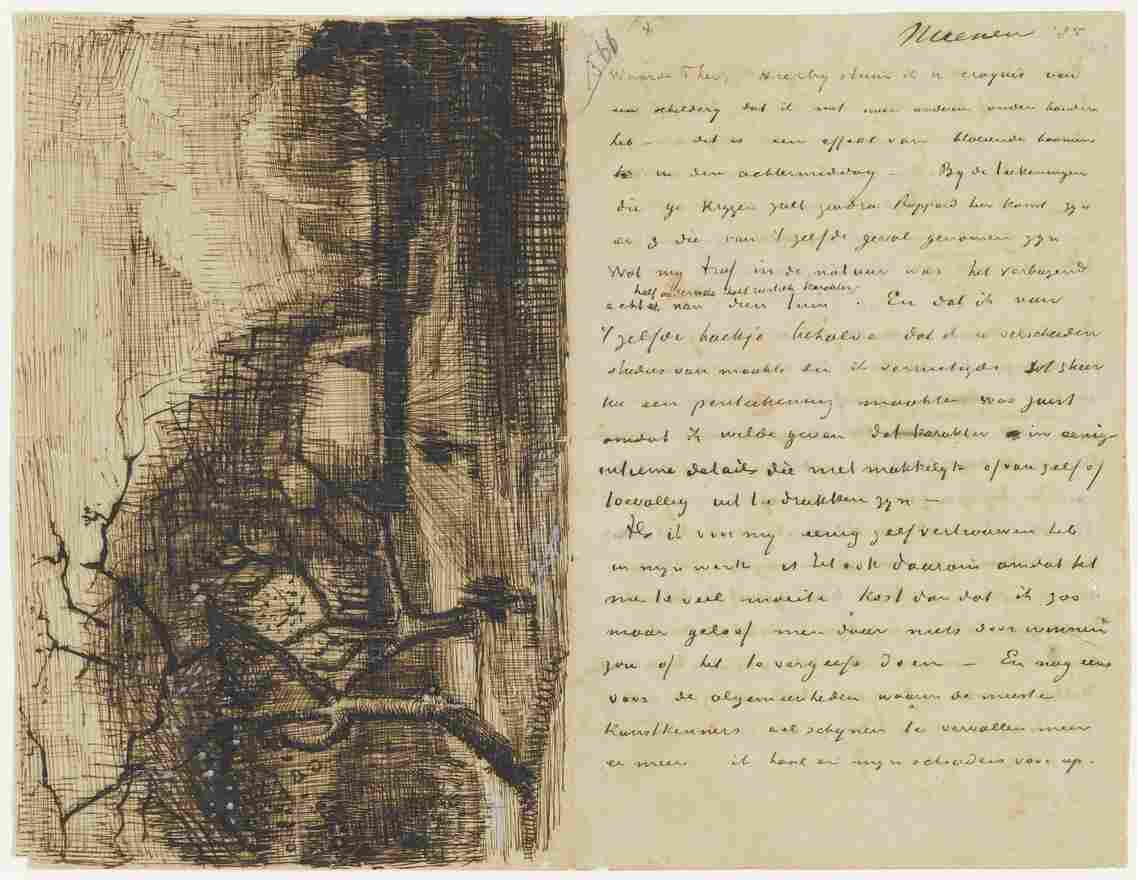 Nuenen '85
Waarde Theo, Hierby stuur ik u croquis van
een schildery dat ik met nog anderen onder handen
heb – dit is een effekt van bloeiende boomen
in den achtermiddag – By de teekeningen
die ge krygen zult zoodra Rappard hier komt zyn
er 3 die van 't zelfde geval genomen zyn
Wat my trof in de natuur was het verbazend
half ouderwets half rustiek karakter
echte van dien tuin . En dat ik van
't zelfde hoekje behalve dat ik er verscheiden
studies van maakte die ik vernietigde tot 3 keer
toe een penteekening maakte was juist
omdat ik wilde geven dat karakter in eenige
intieme details die niet makkelyk of van zelf of
toevallig uit te drukken zyn –
Als ik voor my eenig zelfvertrouwen heb
in myn werk is het ook daarom omdat het
me te veel moeite kost dan dat ik zoo
maar geloof men daar niets door winnen
zou of het te vergeefs doen – En nog eens
voor de algemeenheden waarin de meeste
kunstkenners wel schynen te vervallen meer
en meer ik haal er myn schouders voor op.